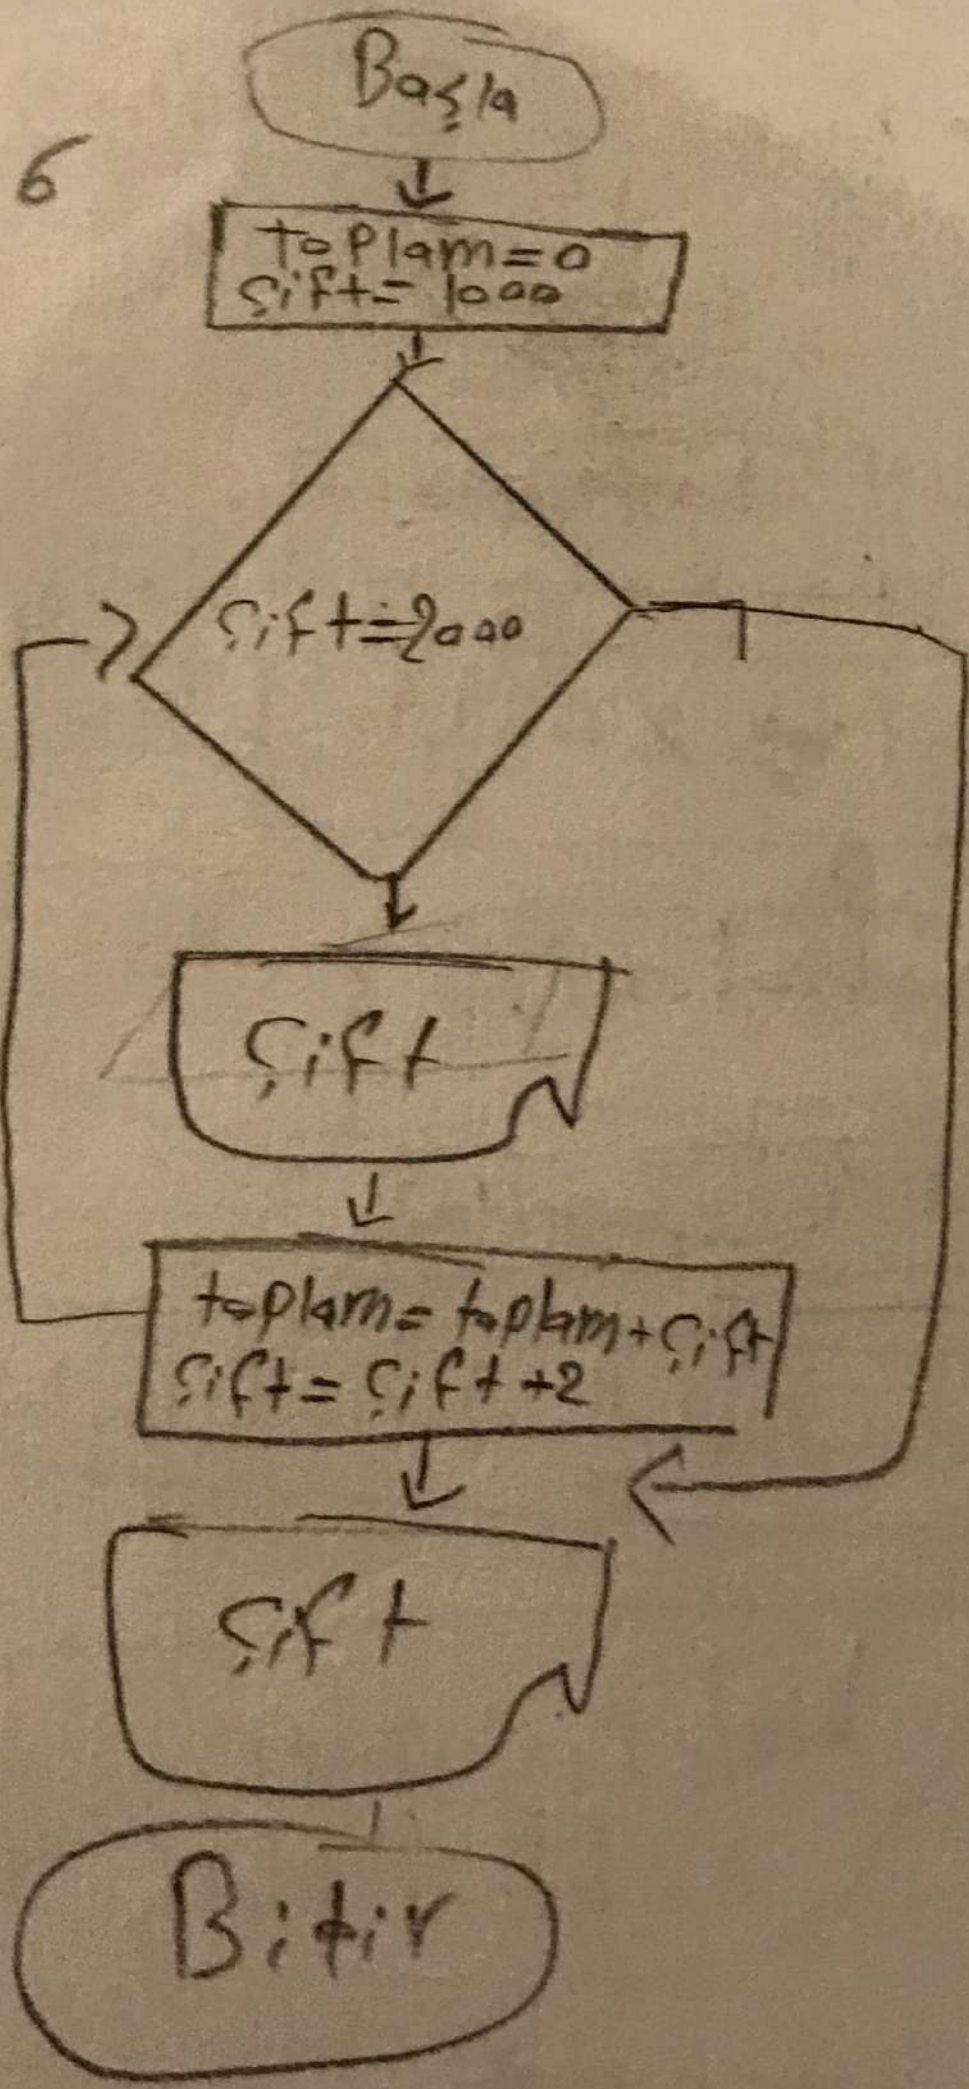 6
Başla
toplam=0
çift=1000
çift=2000
çift
toplam=toplam+çift
çift=çift+2
çift
Bitir